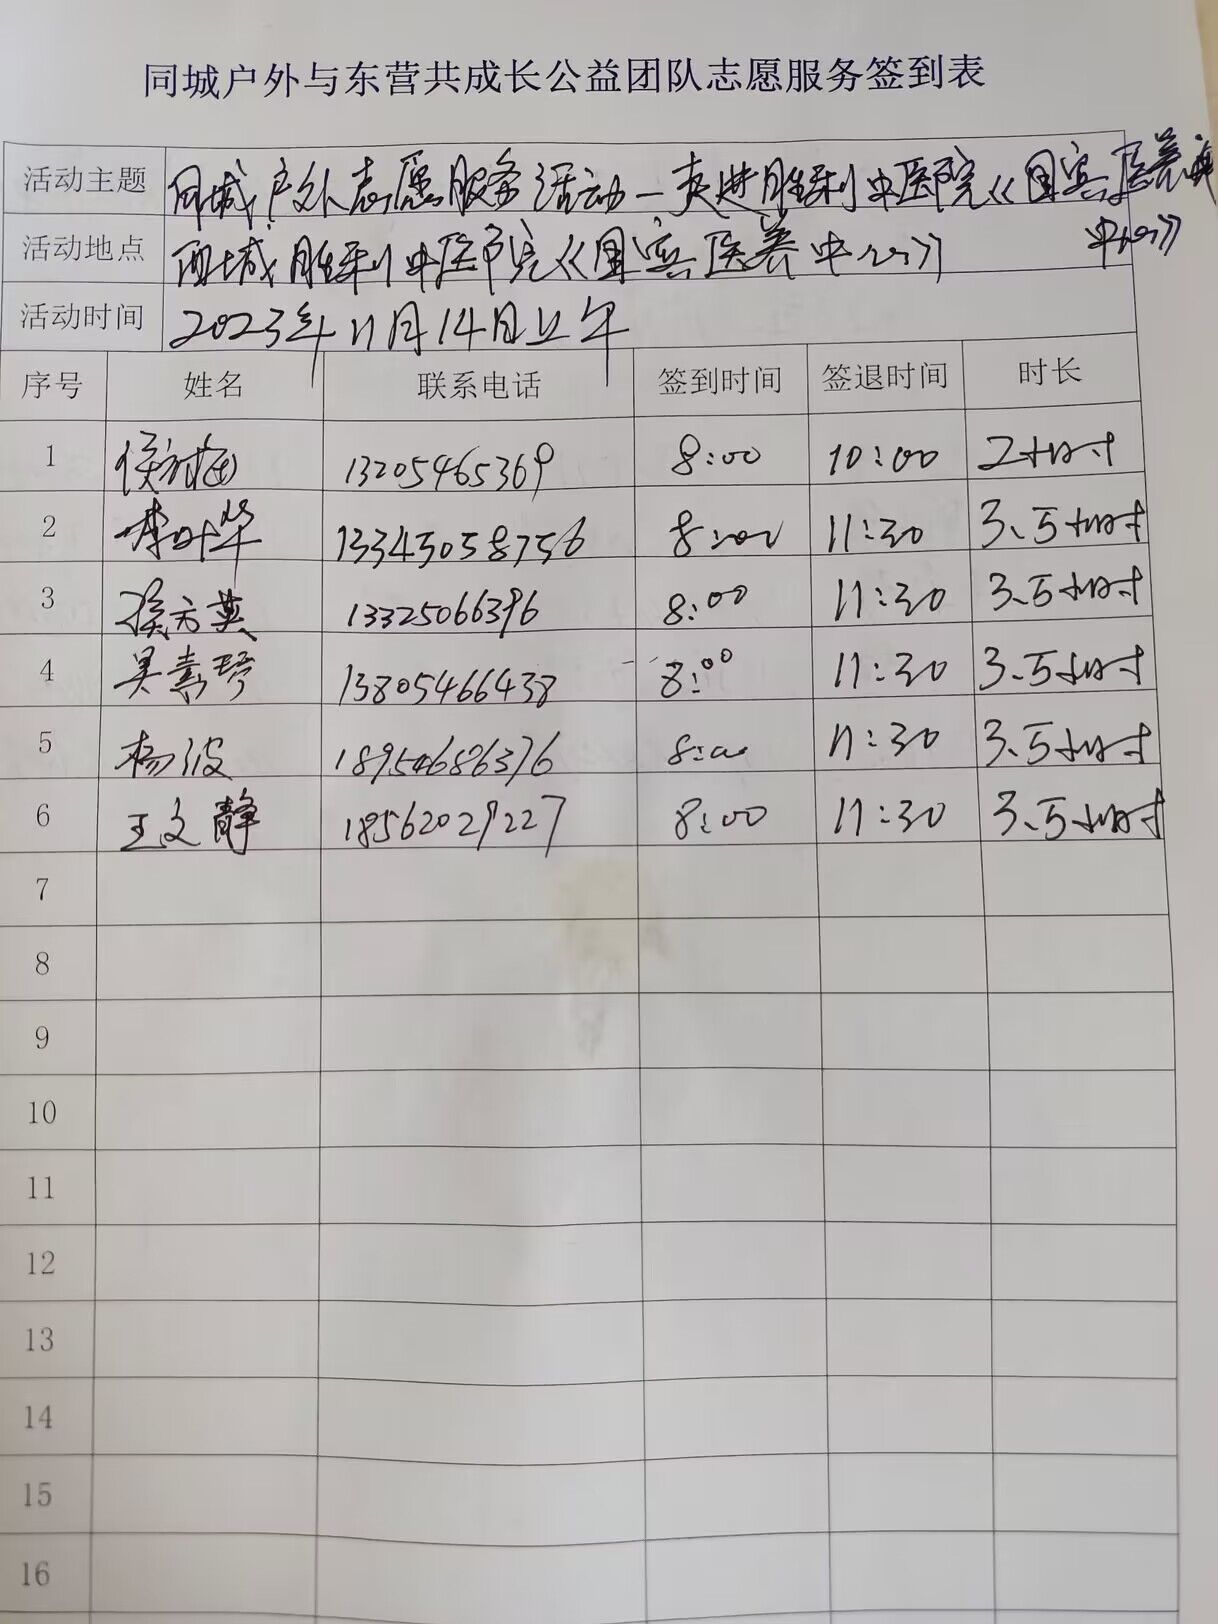 同城户外与东营共成长公益团队志愿服务签到表
活动主题 同城户外志愿服务活动—走进胜利中医院《国宾医养
中心》
活动地点 西城胜利中医院《国宾医养中心》
活动时间 2023年11月14日上午
序号 姓名 联系电话 签到时间 签退时间 时长
1 13205465369 8:00 10:00 2小时
2 李叶华 13345058756 8:00 11:30 3.5小时
3 侯方英 13325066396 8:00 11:30 3.5小时
4 吴素琴 13805466438 8:00 11:30 3.5小时
5 杨波 18954686376 8:00 11:30 3.5小时
6 王文静 18562029227 8:00 11:30 3.5小时
7
8
9
10
11
12
13
14
15
16